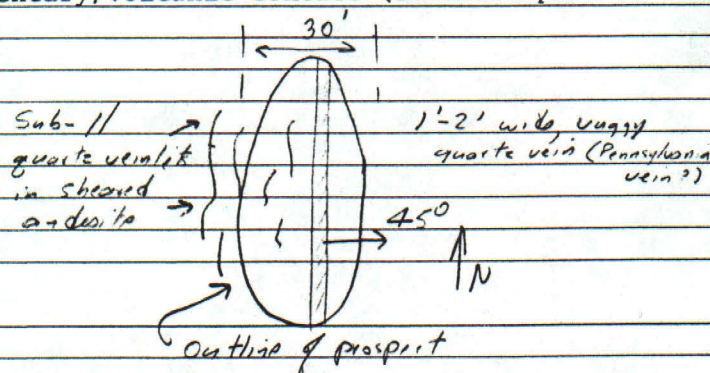 30'
Sub-//
quartz veinlets
in sheared
andesite
1'-2' wide, vuggy
quartz vein (Pennsylvania
vein?)
45°
N
Outline of prospect